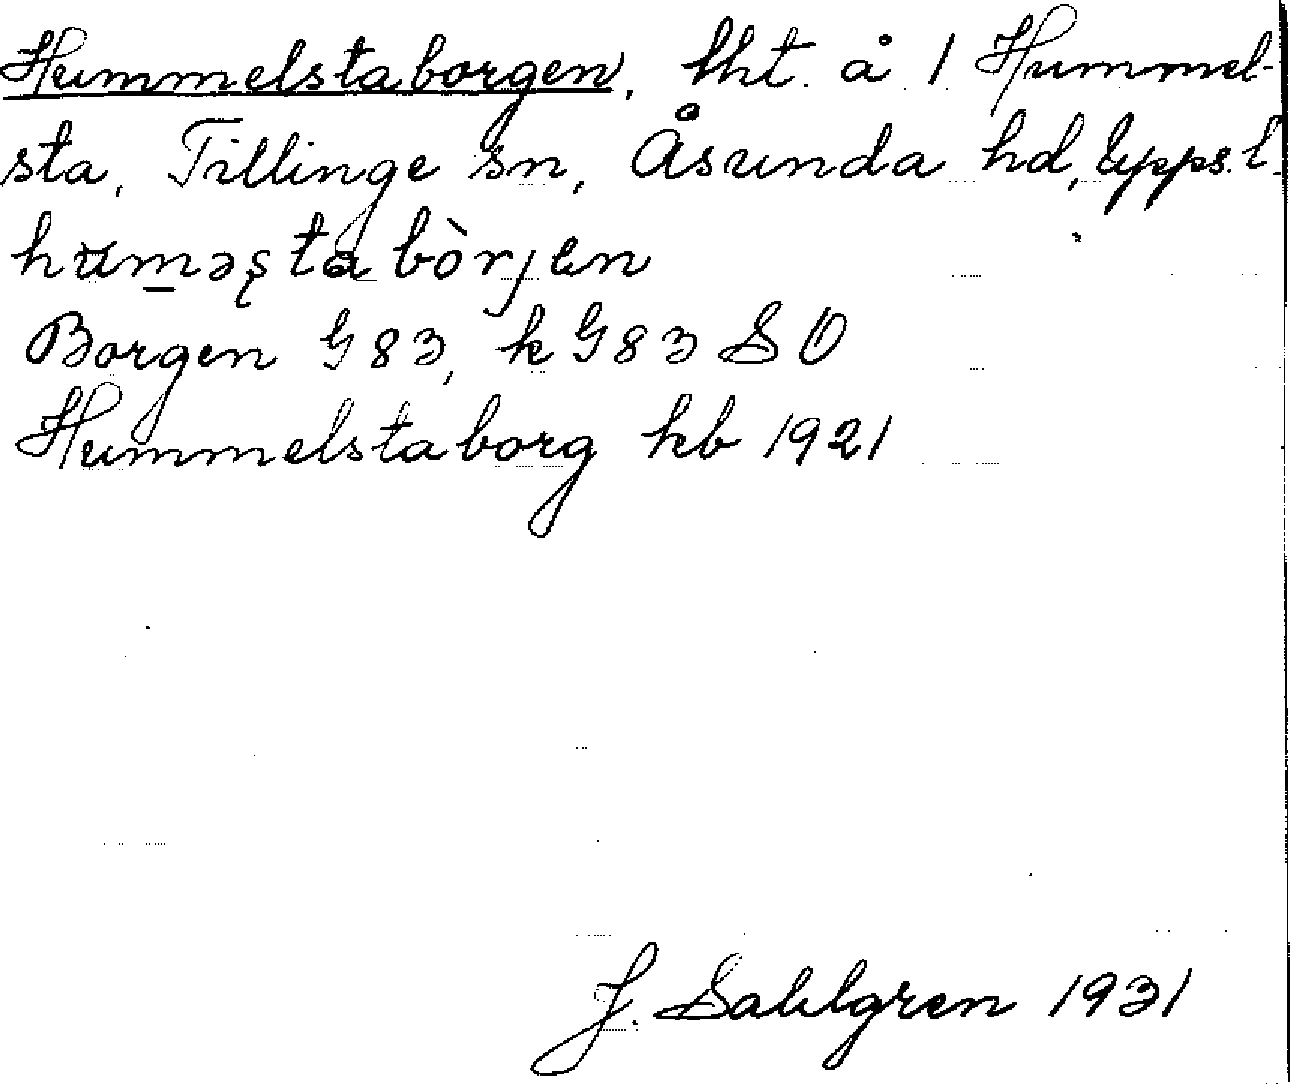 Hummelstaborgen, lht. å 1 Hummel-
sta, Tillinge sn, Åsunda hd, Upps. l.
Borgen G 83, k G 83 S O
Hummelstaborg kb 1921
J. Sahlgren 1931